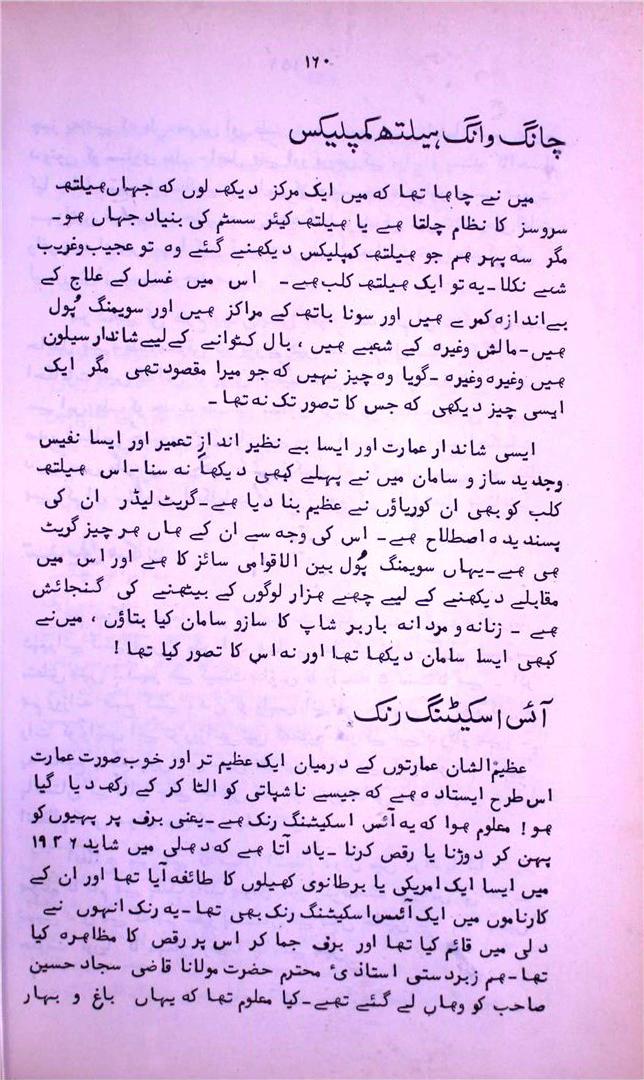 ۱۶۰
چانگ وانگ ہیلتھ کمپلیکس
میں نے چاہا تھا کہ میں ایک مرکز دیکھ لوں کہ جہاں ہیلتھ
سروسز کا نظام چلتا ہے یا ہیلتھ کیئر سسٹم کی بنیاد جہاں ہو۔
مگر سہ پہر ہم جو ہیلتھ کمپلیکس دیکھنے گئے وہ تو عجیب و غریب
شے نکلا۔ یہ تو ایک ہیلتھ کلب ہے۔ اس میں غسل کے علاج کے
بے اندازہ کمرے ہیں اور سونا باتھ کے مراکز ہیں اور سویمنگ پُول
ہیں۔ مالش وغیرہ کے شعبے ہیں، بال کٹوانے کے لیے شاندار سیلون
ہیں وغیرہ وغیرہ۔ گویا وہ چیز نہیں کہ جو میرا مقصود تھی مگر ایک
ایسی چیز دیکھی کہ جس کا تصور تک نہ تھا۔
ایسی شاندار عمارت اور ایسا بے نظیر اندازِ تعمیر اور ایسا نفیس
وجدید ساز و سامان میں نے پہلے کبھی دیکھا نہ سنا۔ اس ہیلتھ
کلب کو بھی ان کوریاؤں نے عظیم بنا دیا ہے۔ گریٹ لیڈر ان کی
پسندیدہ اصطلاح ہے۔ اس کی وجہ سے ان کے ہاں ہر چیز گریٹ
ہی ہے۔ یہاں سویمنگ پُول بین الاقوامی سائز کا ہے اور اس میں
مقابلے دیکھنے کے لیے چھے ہزار لوگوں کے بیٹھنے کی گنجائش
ہے۔ زنانہ و مردانہ باربر شاپ کا سازو سامان کیا بتاؤں، میں نے
کبھی ایسا سامان دیکھا تھا اور نہ اس کا تصور کیا تھا!
آئس اسکیٹنگ رنک
عظیم الشان عمارتوں کے درمیان ایک عظیم تر اور خوب صورت عمارت
اس طرح ایستادہ ہے کہ جیسے ناشپاتی کو الٹا کر کے رکھ دیا گیا
ہو! معلوم ہوا کہ یہ آئس اسکیٹنگ رنک ہے۔ یعنی برف پر پہیوں کو
پہن کر دوڑنا یا رقص کرنا۔ یاد آتا ہے کہ دہلی میں شاید ۱۹۳۶
میں ایسا ایک امریکی یا برطانوی کھیلوں کا طائفہ آیا تھا اور ان کے
کارناموں میں ایک آئس اسکیٹنگ رنک بھی تھا۔ یہ رنک انہوں نے
دلی میں قائم کیا تھا اور برف جما کر اس پر رقص کا مظاہرہ کیا
تھا۔ ہم زبردستی استاذیٔ محترم حضرت مولانا قاضی سجاد حسین
صاحب کو وہاں لے گئے تھے۔ کیا معلوم تھا کہ یہاں باغ و بہار